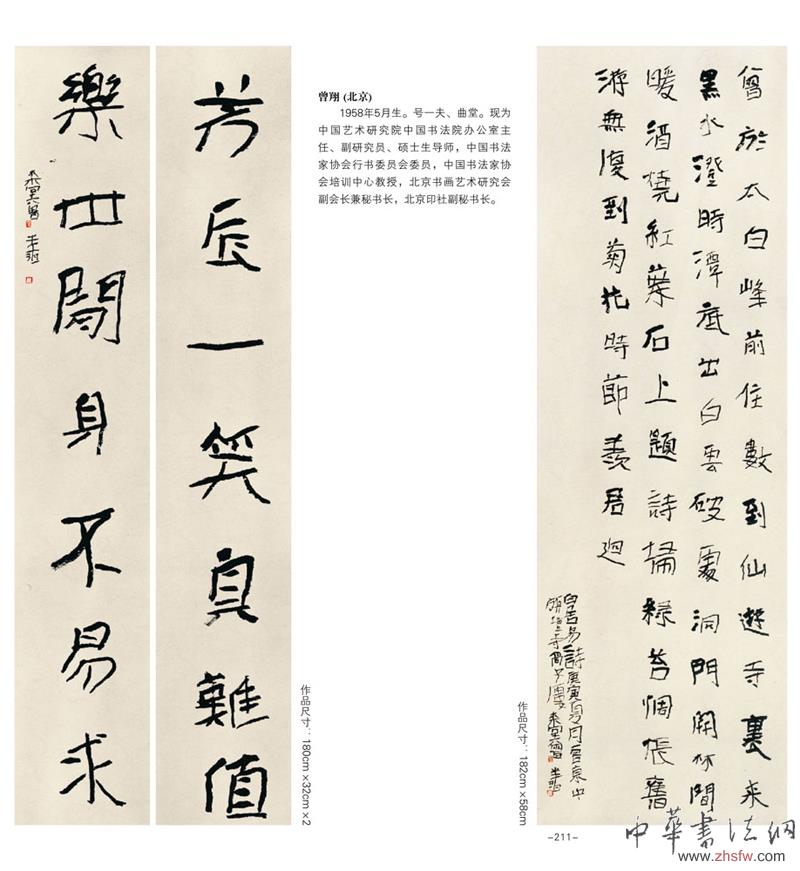 芳辰一笑真難值
樂世閒身不易求
曾翔 (北京)
1958年5月生。号一夫、曲堂。现为
中国艺术研究院中国书法院办公室主
任、副研究员、硕士生导师，中国书法
家协会行书委员会委员，中国书法家协
会培训中心教授，北京书画艺术研究会
副会长兼秘书长，北京印社副秘书长。
作品尺寸：180cm×32cm×2
曾於太白峰前住數到仙遊寺裏来
黑水澄時潭底出白雲破處洞門開林間
暖酒燒紅葉石上題詩掃綠苔惆悵舊
游無復到菊花時節羨君迴
白居易詩庚寅夏月
作品尺寸：182cm×58cm
-211-
中華書法網
www.zhsfw.com